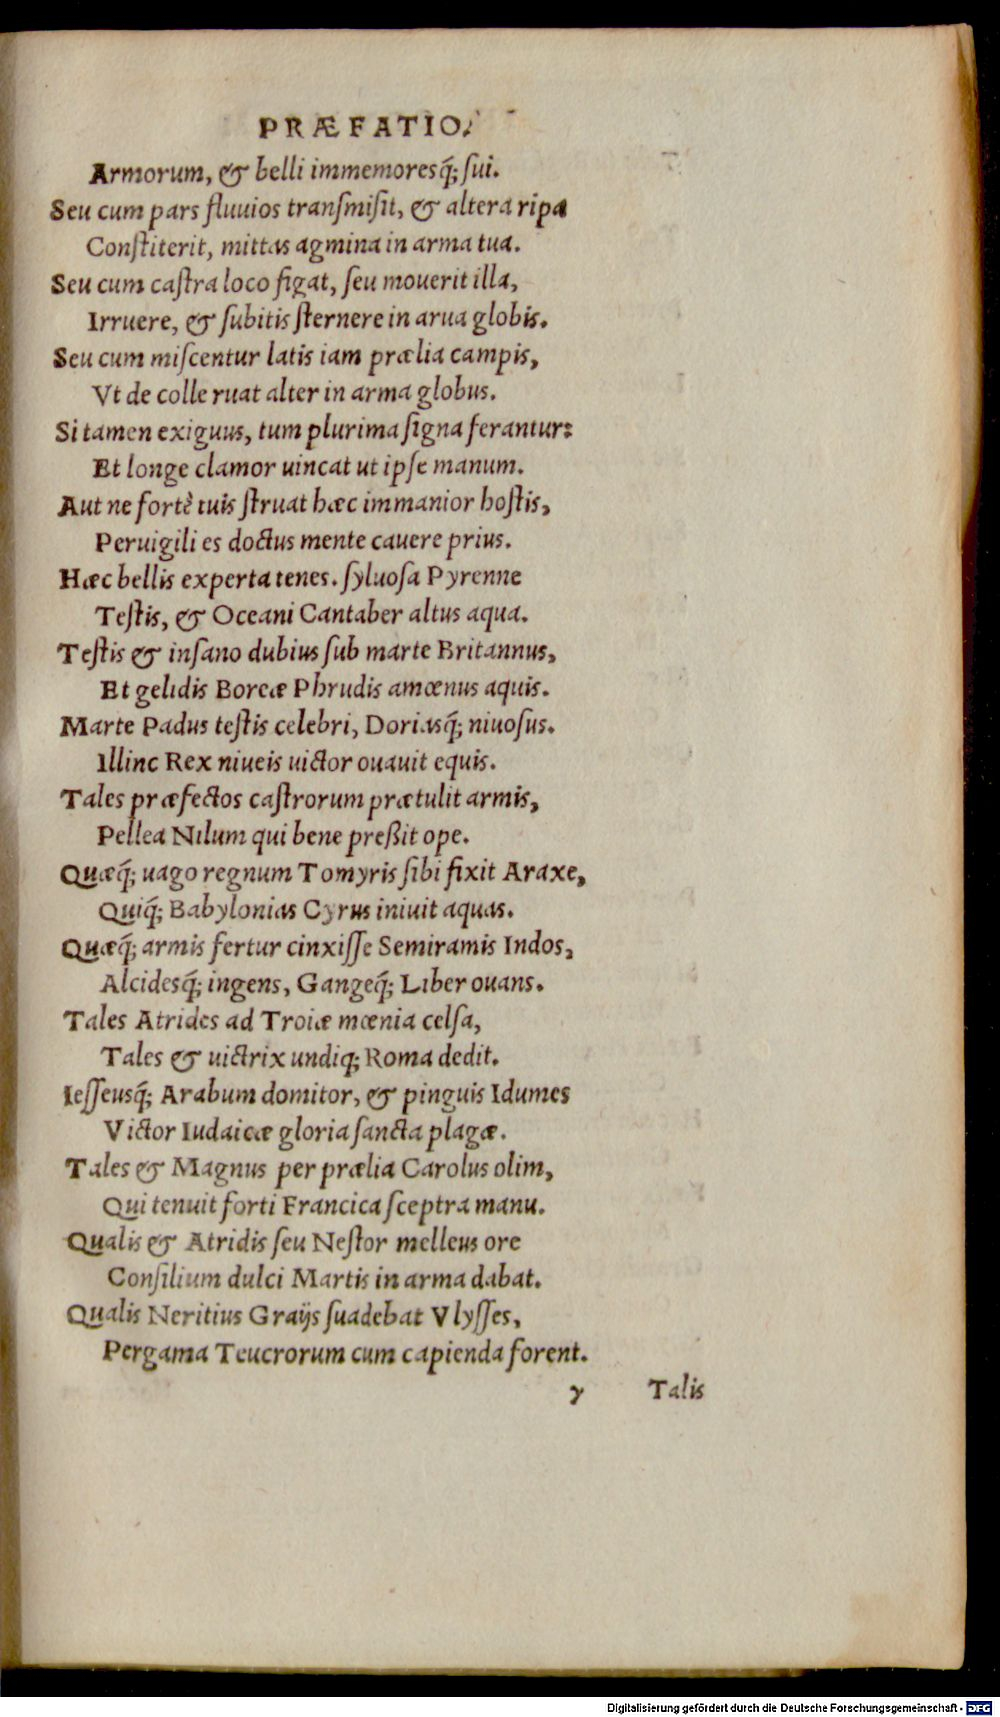 PRÆFATIO.
Armorum, & belli immemoresq́; ſui.
Seu cum pars fluuios tranſmiſit, & altera ripa
Conſtiterit, mittas agmina in arma tua.
Seu cum caſtra loco figat, ſeu mouerit illa,
Irruere, & ſubitis ſternere in arua globis.
Seu cum miſcentur latis iam prælia campis,
Vt de colle ruat alter in arma globus.
Si tamen exiguus, tum plurima ſigna ferantur:
Et longe clamor uincat ut ipſe manum.
Aut ne fortè tuis ſtruat hæc immanior hoſtis,
Peruigili es doctus mente cauere prius.
Hæc bellis experta tenes. ſyluoſa Pyrenne
Teſtis, & Oceani Cantaber altus aqua.
Teſtis & inſano dubius ſub marte Britannus,
Et gelidis Boreæ Phrudis amœnus aquis.
Marte Padus teſtis celebri, Doriasq́; niuoſus.
Illinc Rex niueis uictor ouauit equis.
Tales præfectos caſtrorum prætulit armis,
Pellea Nilum qui bene preßit ope.
Quæq́; uago regnum Tomyris ſibi fixit Araxe,
Quiq́; Babylonias Cyrus iniuit aquas.
Quæq́; armis fertur cinxiſſe Semiramis Indos,
Alcidesq́; ingens, Gangeq́; Liber ouans.
Tales Atrides ad Troiæ mœnia celſa,
Tales & uictrix undiq; Roma dedit.
Ieſſeusq́; Arabum domitor, & pinguis Idumes
Victor Iudaicæ gloria ſancta plagæ.
Tales & Magnus per prælia Carolus olim,
Qui tenuit forti Francica ſceptra manu.
Qualis & Atridis ſeu Neſtor melleus ore
Conſilium dulci Martis in arma dabat.
Qualis Neritius Graijs ſuadebat Vlyſſes,
Pergama Teucrorum cum capienda forent.
γ Talis
Digitalisierung gefördert durch die Deutsche Forschungsgemeinschaft - DFG